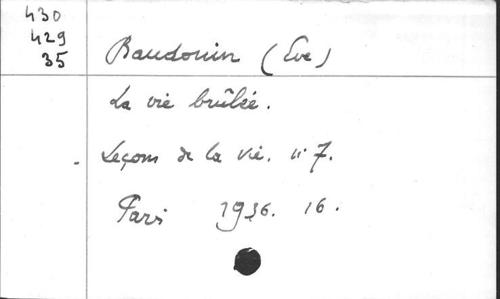 430
429
35
Baudouin (Eve)
La vie brûlée.
Leçons de la vie. n° 7.
Paris 1936. 16.